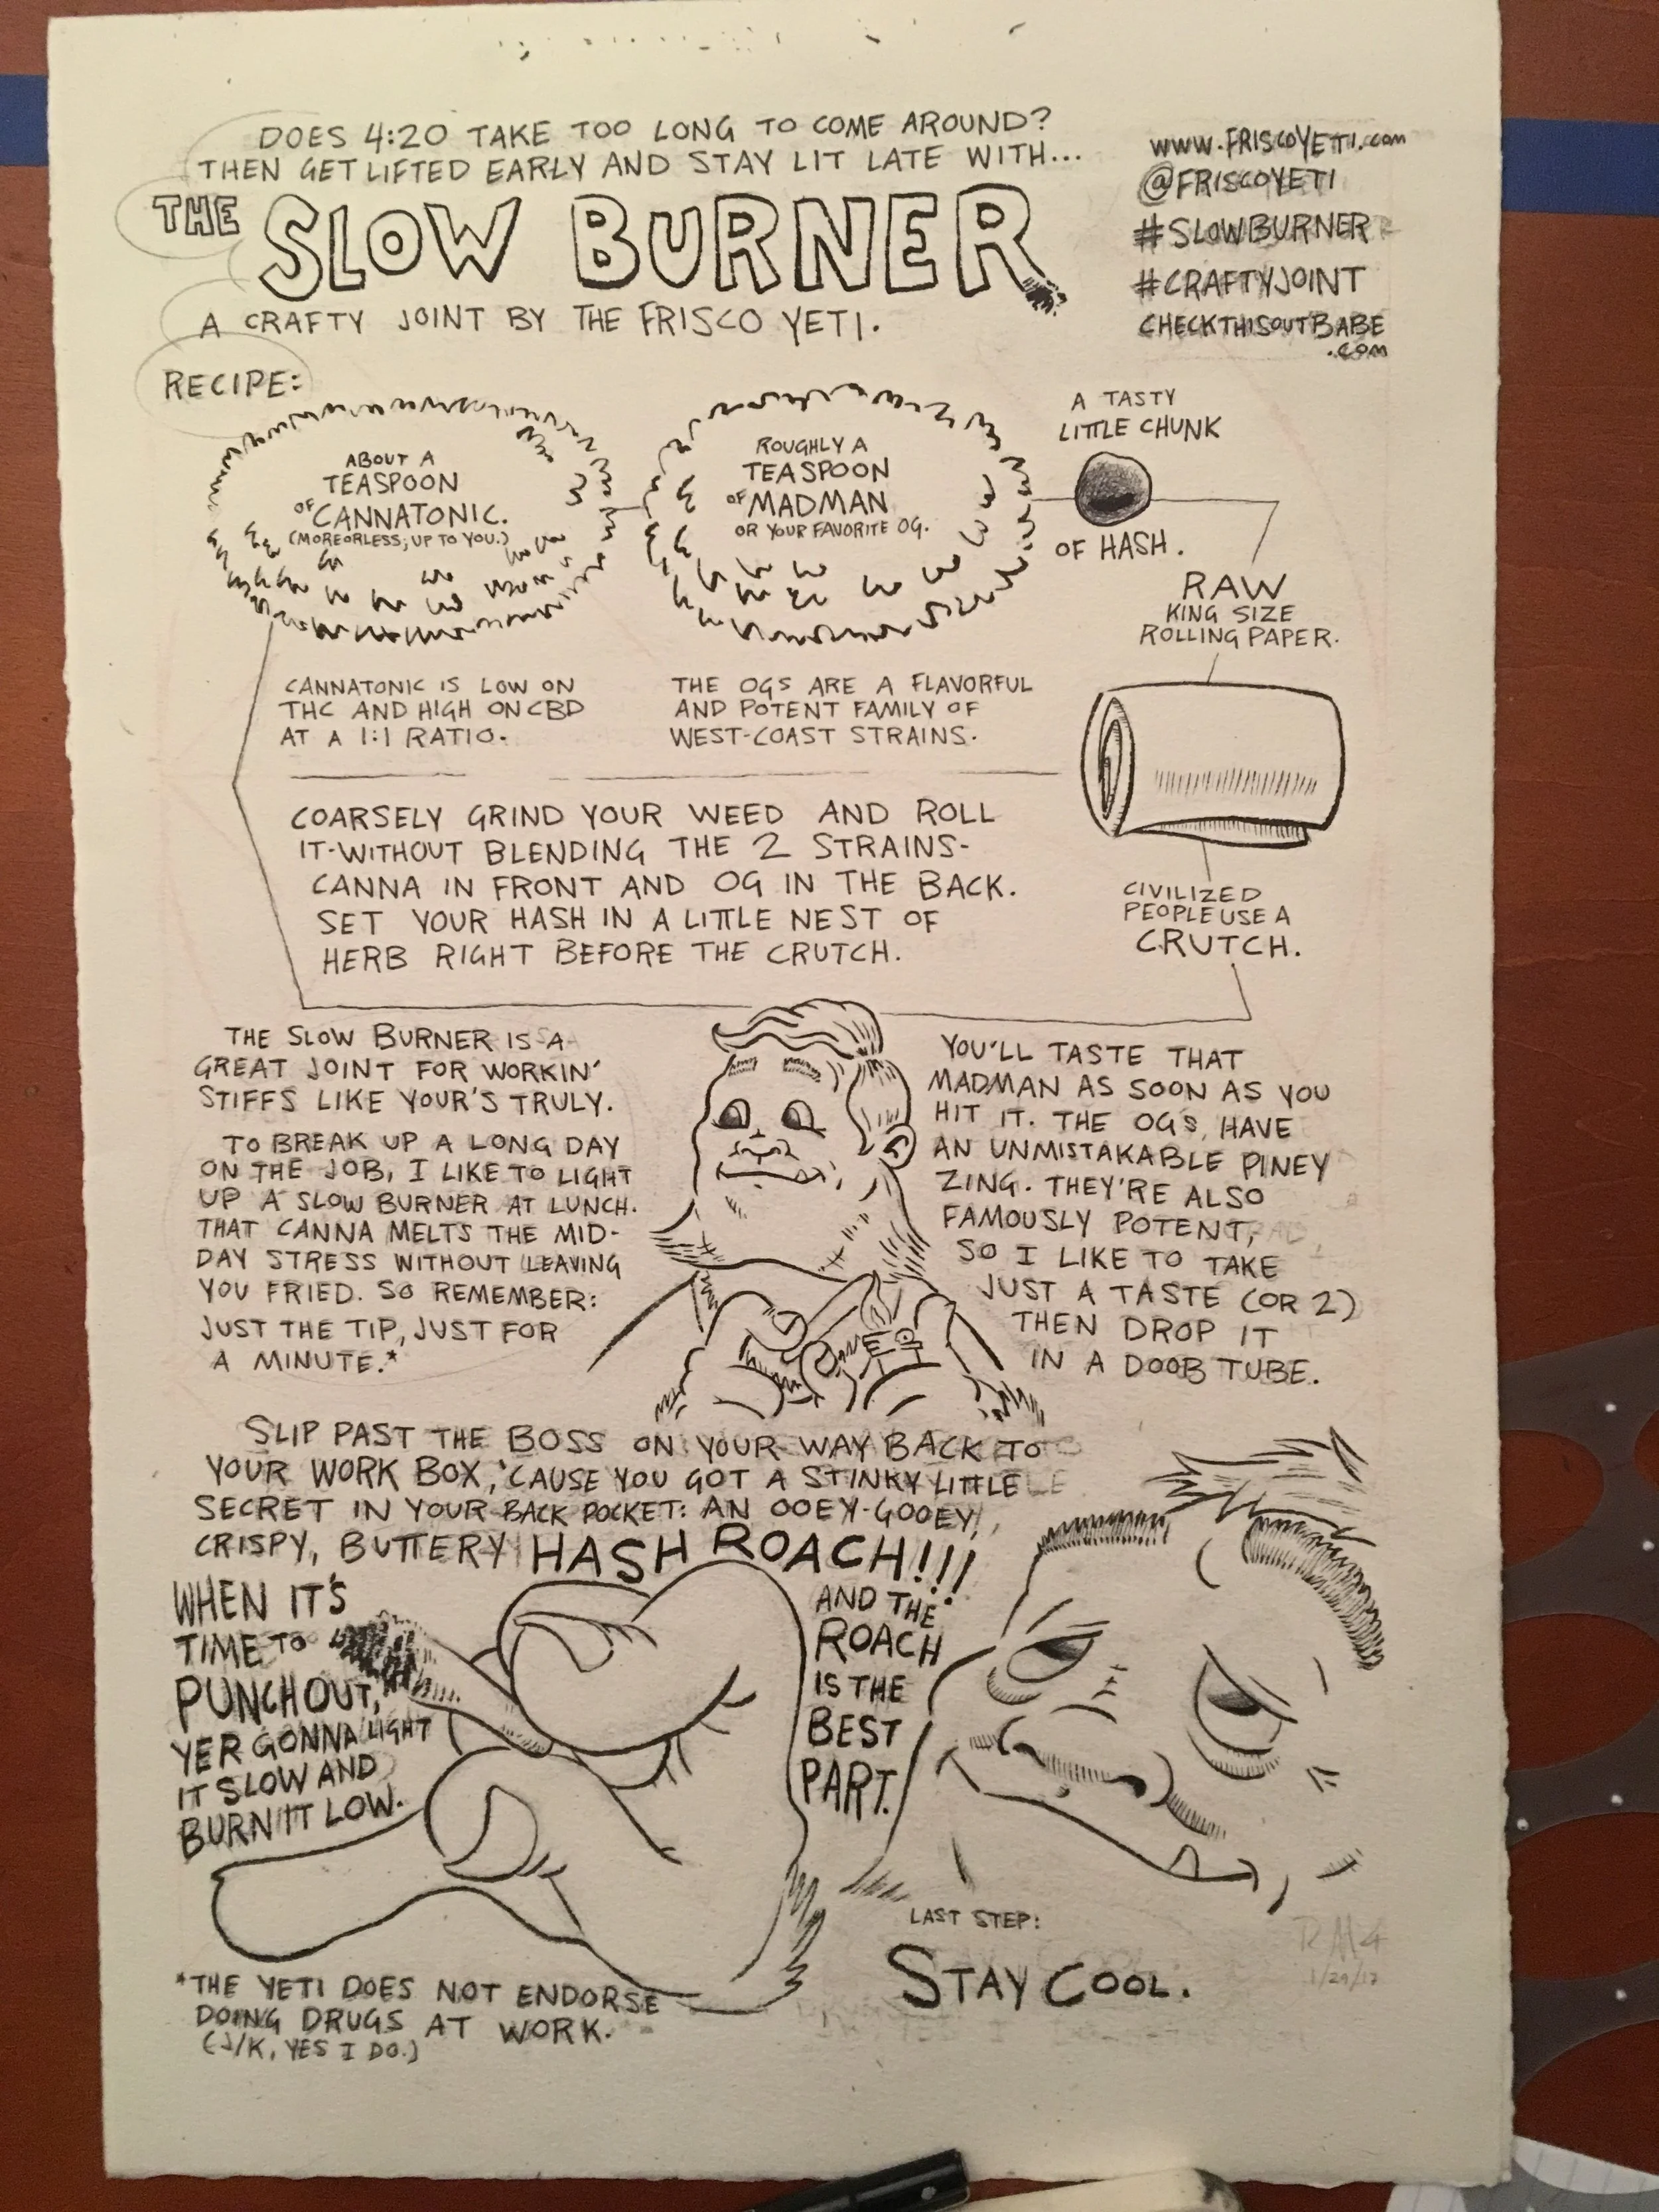 DOES 4:20 TAKE TOO LONG TO COME AROUND?
THEN GET LIFTED EARLY AND STAY LIT LATE WITH...
THE SLOW BURNER
A CRAFTY JOINT BY THE FRISCO YETI.
WWW.FRISCOYETI.com
@FRISCOYETI
#SLOWBURNER
#CRAFTYJOINT
CHECKTHISOUTBABE
.COM
RECIPE:
ABOUT A
TEASPOON
OF CANNATONIC.
(MORE OR LESS; UP TO YOU.)
ROUGHLY A
TEASPOON
OF MADMAN
OR YOUR FAVORITE OG.
A TASTY
LITTLE CHUNK
OF HASH.
RAW
KING SIZE
ROLLING PAPER.
CANNATONIC IS LOW ON
THC AND HIGH ON CBD
AT A 1:1 RATIO.
THE OGS ARE A FLAVORFUL
AND POTENT FAMILY OF
WEST-COAST STRAINS.
COARSELY GRIND YOUR WEED AND ROLL
IT-WITHOUT BLENDING THE 2 STRAINS-
CANNA IN FRONT AND OG IN THE BACK.
SET YOUR HASH IN A LITTLE NEST OF
HERB RIGHT BEFORE THE CRUTCH.
CIVILIZED
PEOPLE USE A
CRUTCH.
THE SLOW BURNER IS A
GREAT JOINT FOR WORKIN'
STIFFS LIKE YOUR'S TRULY.
TO BREAK UP A LONG DAY
ON THE JOB, I LIKE TO LIGHT
UP A SLOW BURNER AT LUNCH.
THAT CANNA MELTS THE MID-
DAY STRESS WITHOUT LEAVING
YOU FRIED. SO REMEMBER:
JUST THE TIP, JUST FOR
A MINUTE.*
YOU'LL TASTE THAT
MADMAN AS SOON AS YOU
HIT IT. THE OGS HAVE
AN UNMISTAKABLE PINEY
ZING. THEY'RE ALSO
FAMOUSLY POTENT,
SO I LIKE TO TAKE
JUST A TASTE (OR 2)
THEN DROP IT
IN A DOOB TUBE.
SLIP PAST THE BOSS ON YOUR WAY BACK TO
YOUR WORK BOX, 'CAUSE YOU GOT A STINKY LITTLE
SECRET IN YOUR BACK POCKET: AN OOEY-GOOEY,
CRISPY, BUTTERY HASH ROACH!!!
WHEN IT'S
TIME TO
PUNCH OUT,
YER GONNA LIGHT
IT SLOW AND
BURN IT LOW.
AND THE
ROACH
IS THE
BEST
PART.
LAST STEP:
STAY COOL.
*THE YETI DOES NOT ENDORSE
DOING DRUGS AT WORK.
(J/K, YES I DO.)